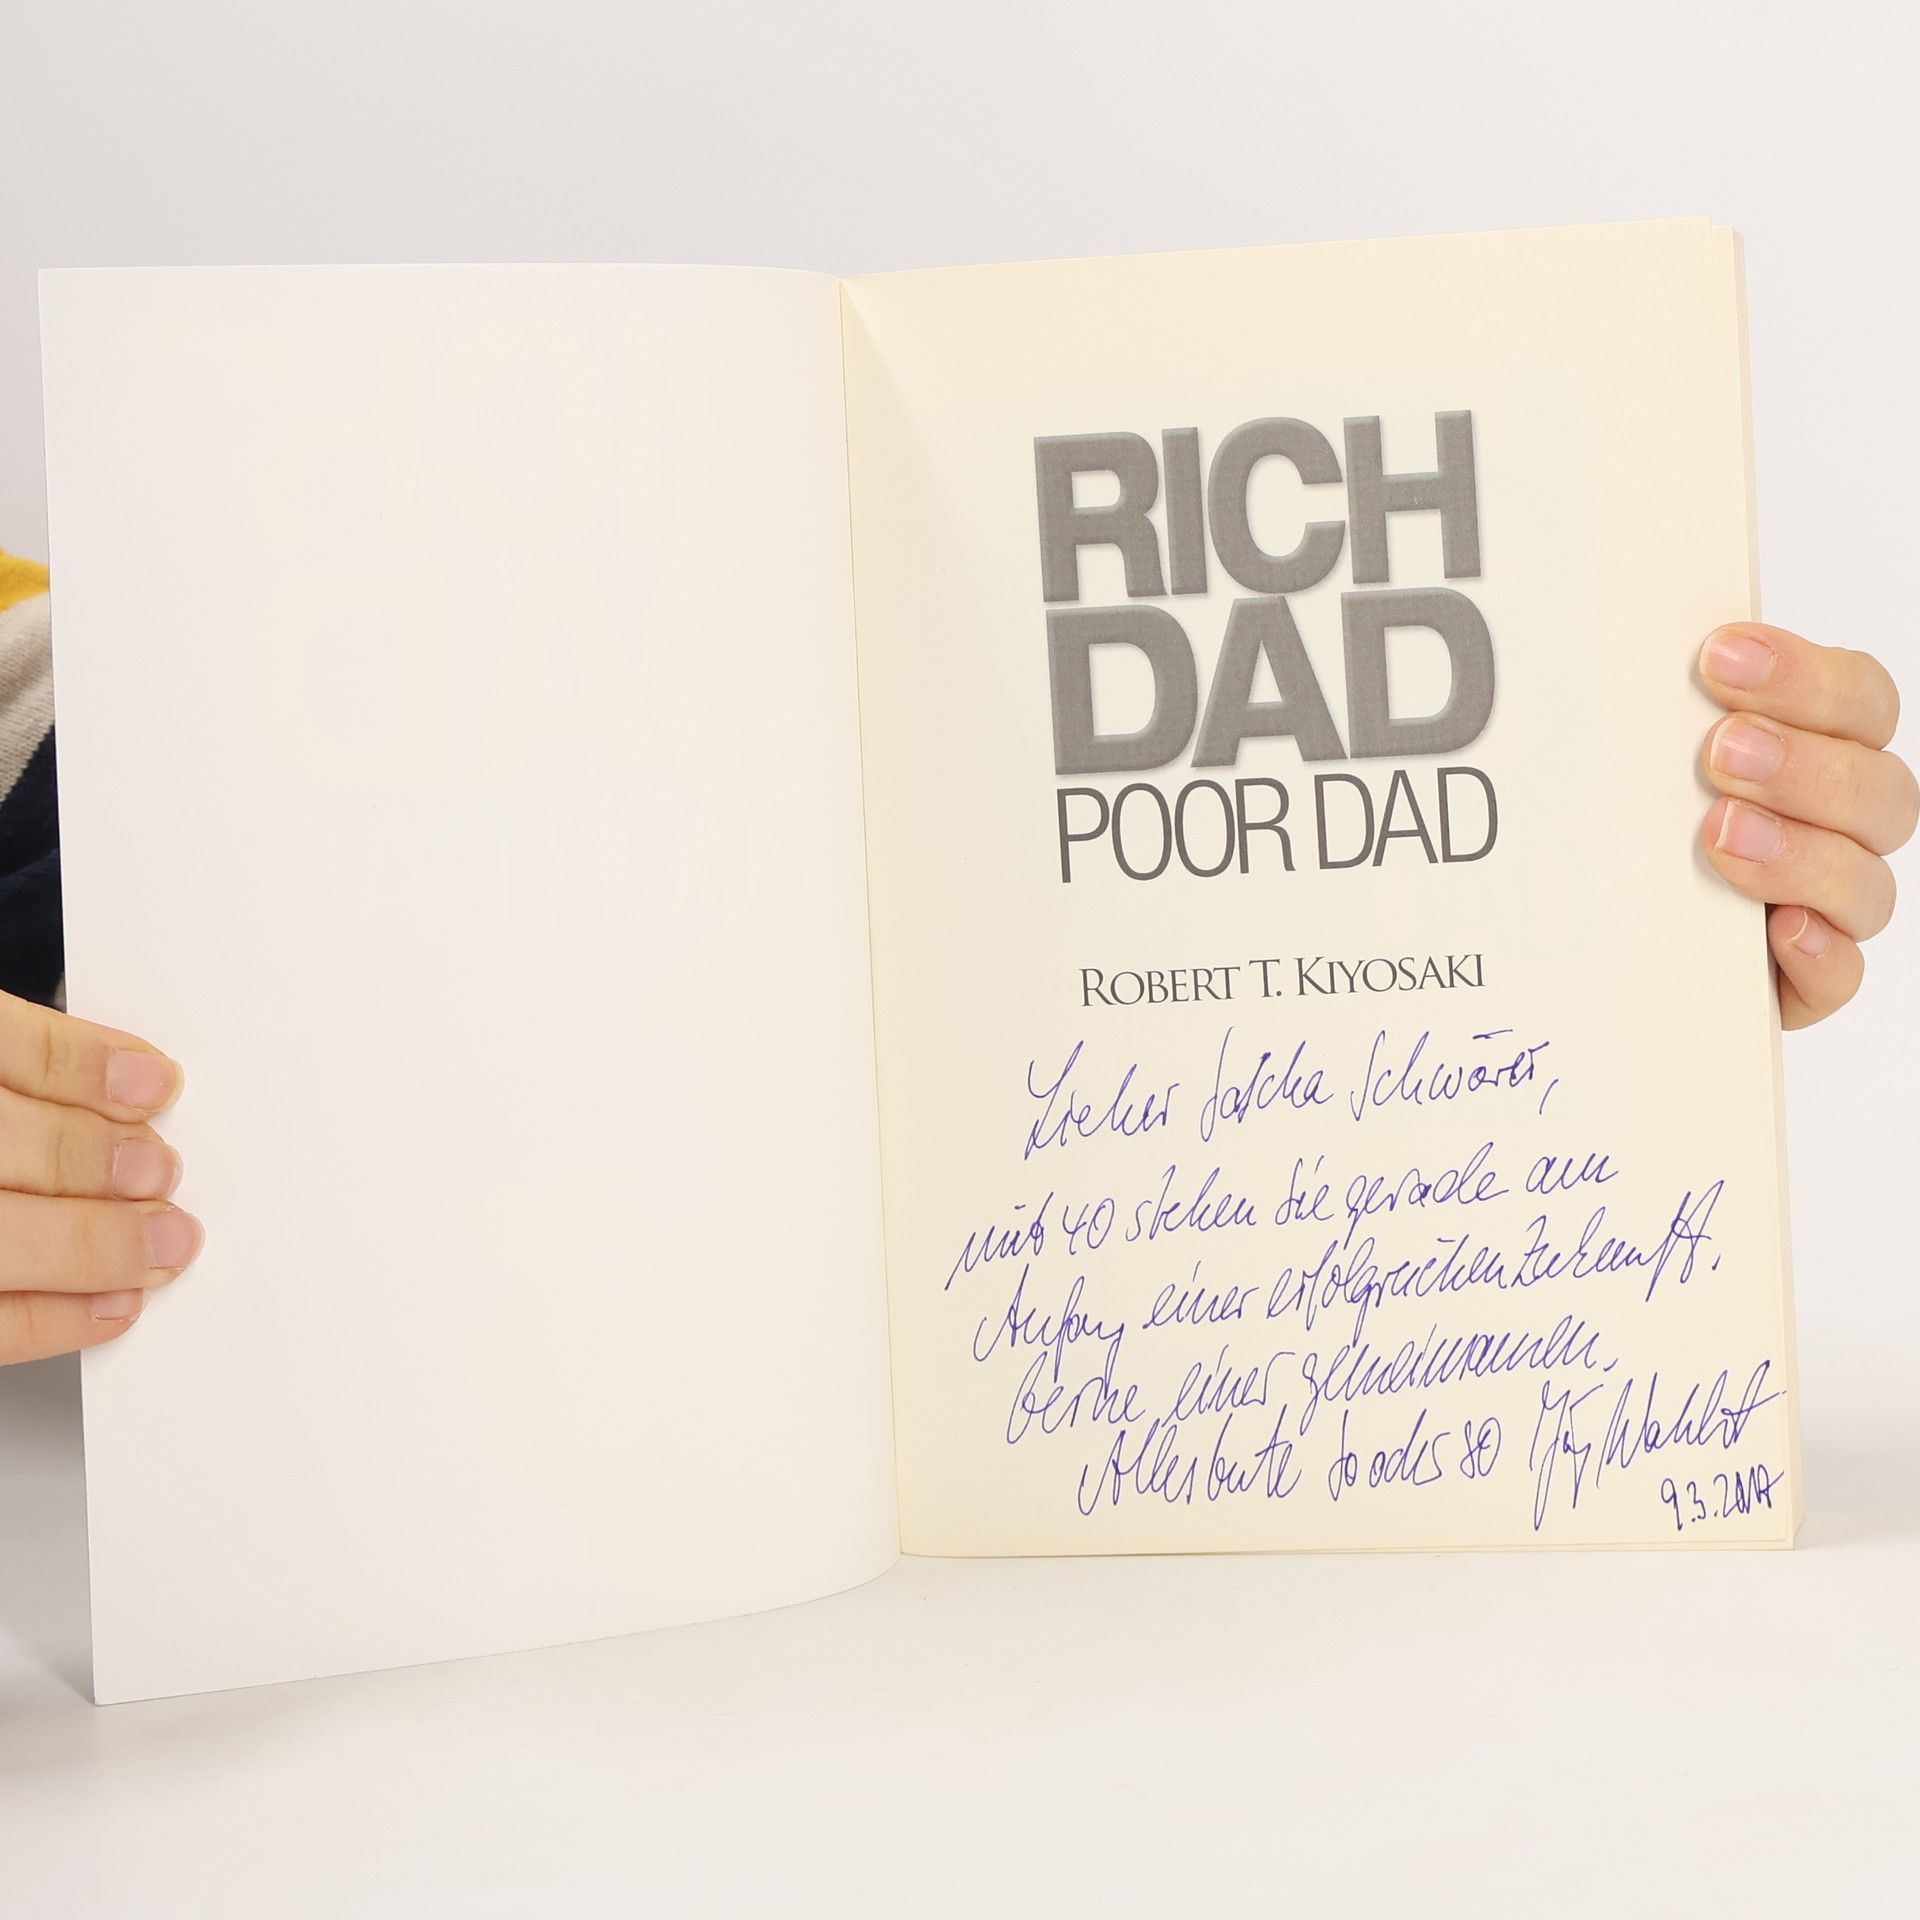 RICH
DAD
POOR DAD
ROBERT T. KIYOSAKI
Lieber Sascha Schwörer,
mit 40 stehen Sie gerade am
Anfang einer erfolgreichen Zukunft.
Gerne einer gemeinsamen.
Alles Gute
9.3.2017